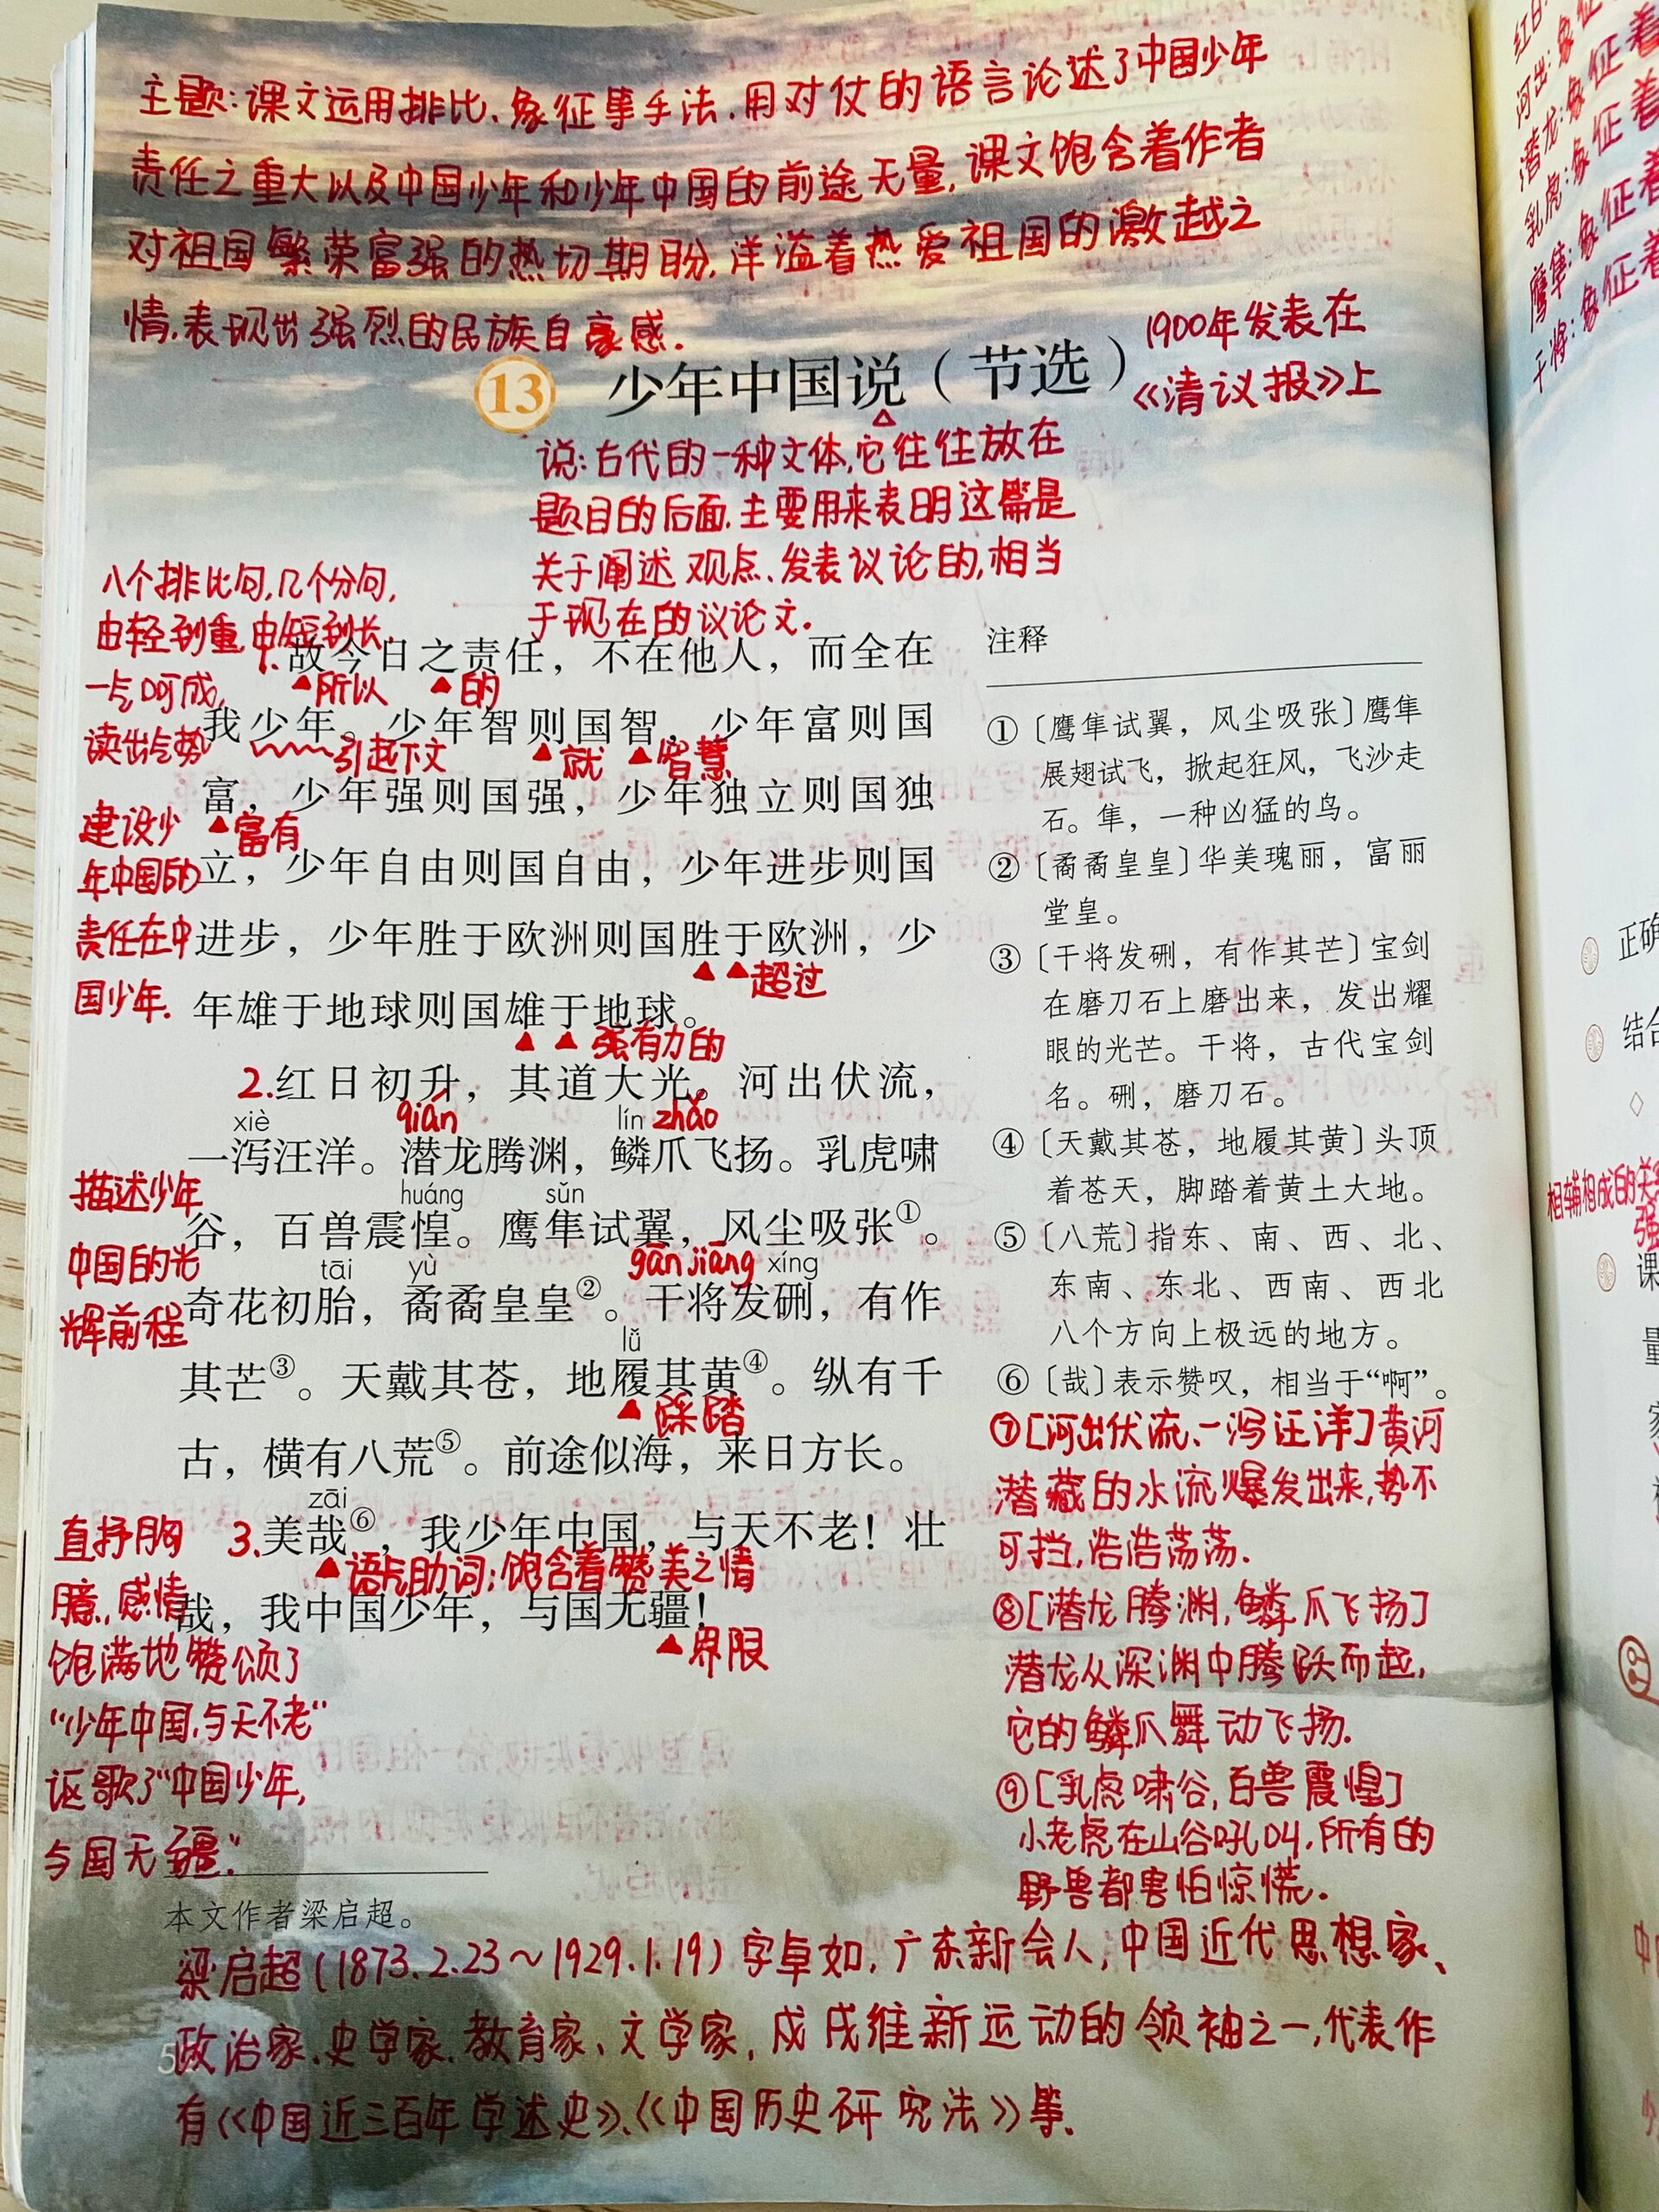 主题:课文运用排比、象征等手法,用对仗的语言论述了中国少年
责任之重大以及中国少年和少年中国的前途无量,课文饱含着作者
对祖国繁荣富强的热切期盼,洋溢着热爱祖国的激越之
情,表现出强烈的民族自豪感.
13 少年中国说(节选)
1900年发表在
《清议报》上
说:古代的一种文体,它往往放在
题目的后面,主要用来表明这篇是
关于阐述观点、发表议论的,相当
于现在的议论文.
八个排比句,几个分句,
由轻到重,由短到长,
一气呵成,
读出气势
建设少
年中国的
责任在中
国少年.
1.故今日之责任,不在他人,而全在
所以 的
我少年。少年智则国智,少年富则国
引起下文 就 智慧
富,少年强则国强,少年独立则国独
富有
立,少年自由则国自由,少年进步则国
进步,少年胜于欧洲则国胜于欧洲,少
超过
年雄于地球则国雄于地球。
强有力的
2.红日初升,其道大光。河出伏流,
xiè qián lín zhǎo
一泻汪洋。潜龙腾渊,鳞爪飞扬。乳虎啸
huáng sǔn
谷,百兽震惶。鹰隼试翼,风尘吸张①。
tāi yù gān jiāng xíng
奇花初胎,矞矞皇皇②。干将发硎,有作
lǚ
其芒③。天戴其苍,地履其黄④。纵有千
踩踏
古,横有八荒⑤。前途似海,来日方长。
zāi
3.美哉⑥,我少年中国,与天不老!壮
语气助词:饱含着赞美之情
哉,我中国少年,与国无疆!
界限
描述少年
中国的光
辉前程
直抒胸
臆,感情
饱满地赞颂了
“少年中国,与天不老”
讴歌了“中国少年,
与国无疆”.
注释
①〔鹰隼试翼,风尘吸张〕鹰隼
展翅试飞,掀起狂风,飞沙走
石。隼,一种凶猛的鸟。
②〔矞矞皇皇〕华美瑰丽,富丽
堂皇。
③〔干将发硎,有作其芒〕宝剑
在磨刀石上磨出来,发出耀
眼的光芒。干将,古代宝剑
名。硎,磨刀石。
④〔天戴其苍,地履其黄〕头顶
着苍天,脚踏着黄土大地。
⑤〔八荒〕指东、南、西、北、
东南、东北、西南、西北
八个方向上极远的地方。
⑥〔哉〕表示赞叹,相当于“啊”。
⑦[河出伏流,一泻汪洋]黄河
潜藏的水流爆发出来,势不
可挡,浩浩荡荡.
⑧[潜龙腾渊,鳞爪飞扬]
潜龙从深渊中腾跃而起,
它的鳞爪舞动飞扬.
⑨[乳虎啸谷,百兽震惶]
小老虎在山谷吼叫,所有的
野兽都害怕惊慌.
本文作者梁启超。
梁启超(1873.2.23~1929.1.19)字卓如,广东新会人,中国近代思想家、
政治家、史学家、教育家、文学家,戊戌维新运动的领袖之一,代表作
有《中国近三百年学术史》、《中国历史研究法》等.
红日:
河出:象征着
潜龙:象征着
乳虎:象征着
鹰隼:象征着
干将:象征着
正确
结合
相辅相成的关
强
课